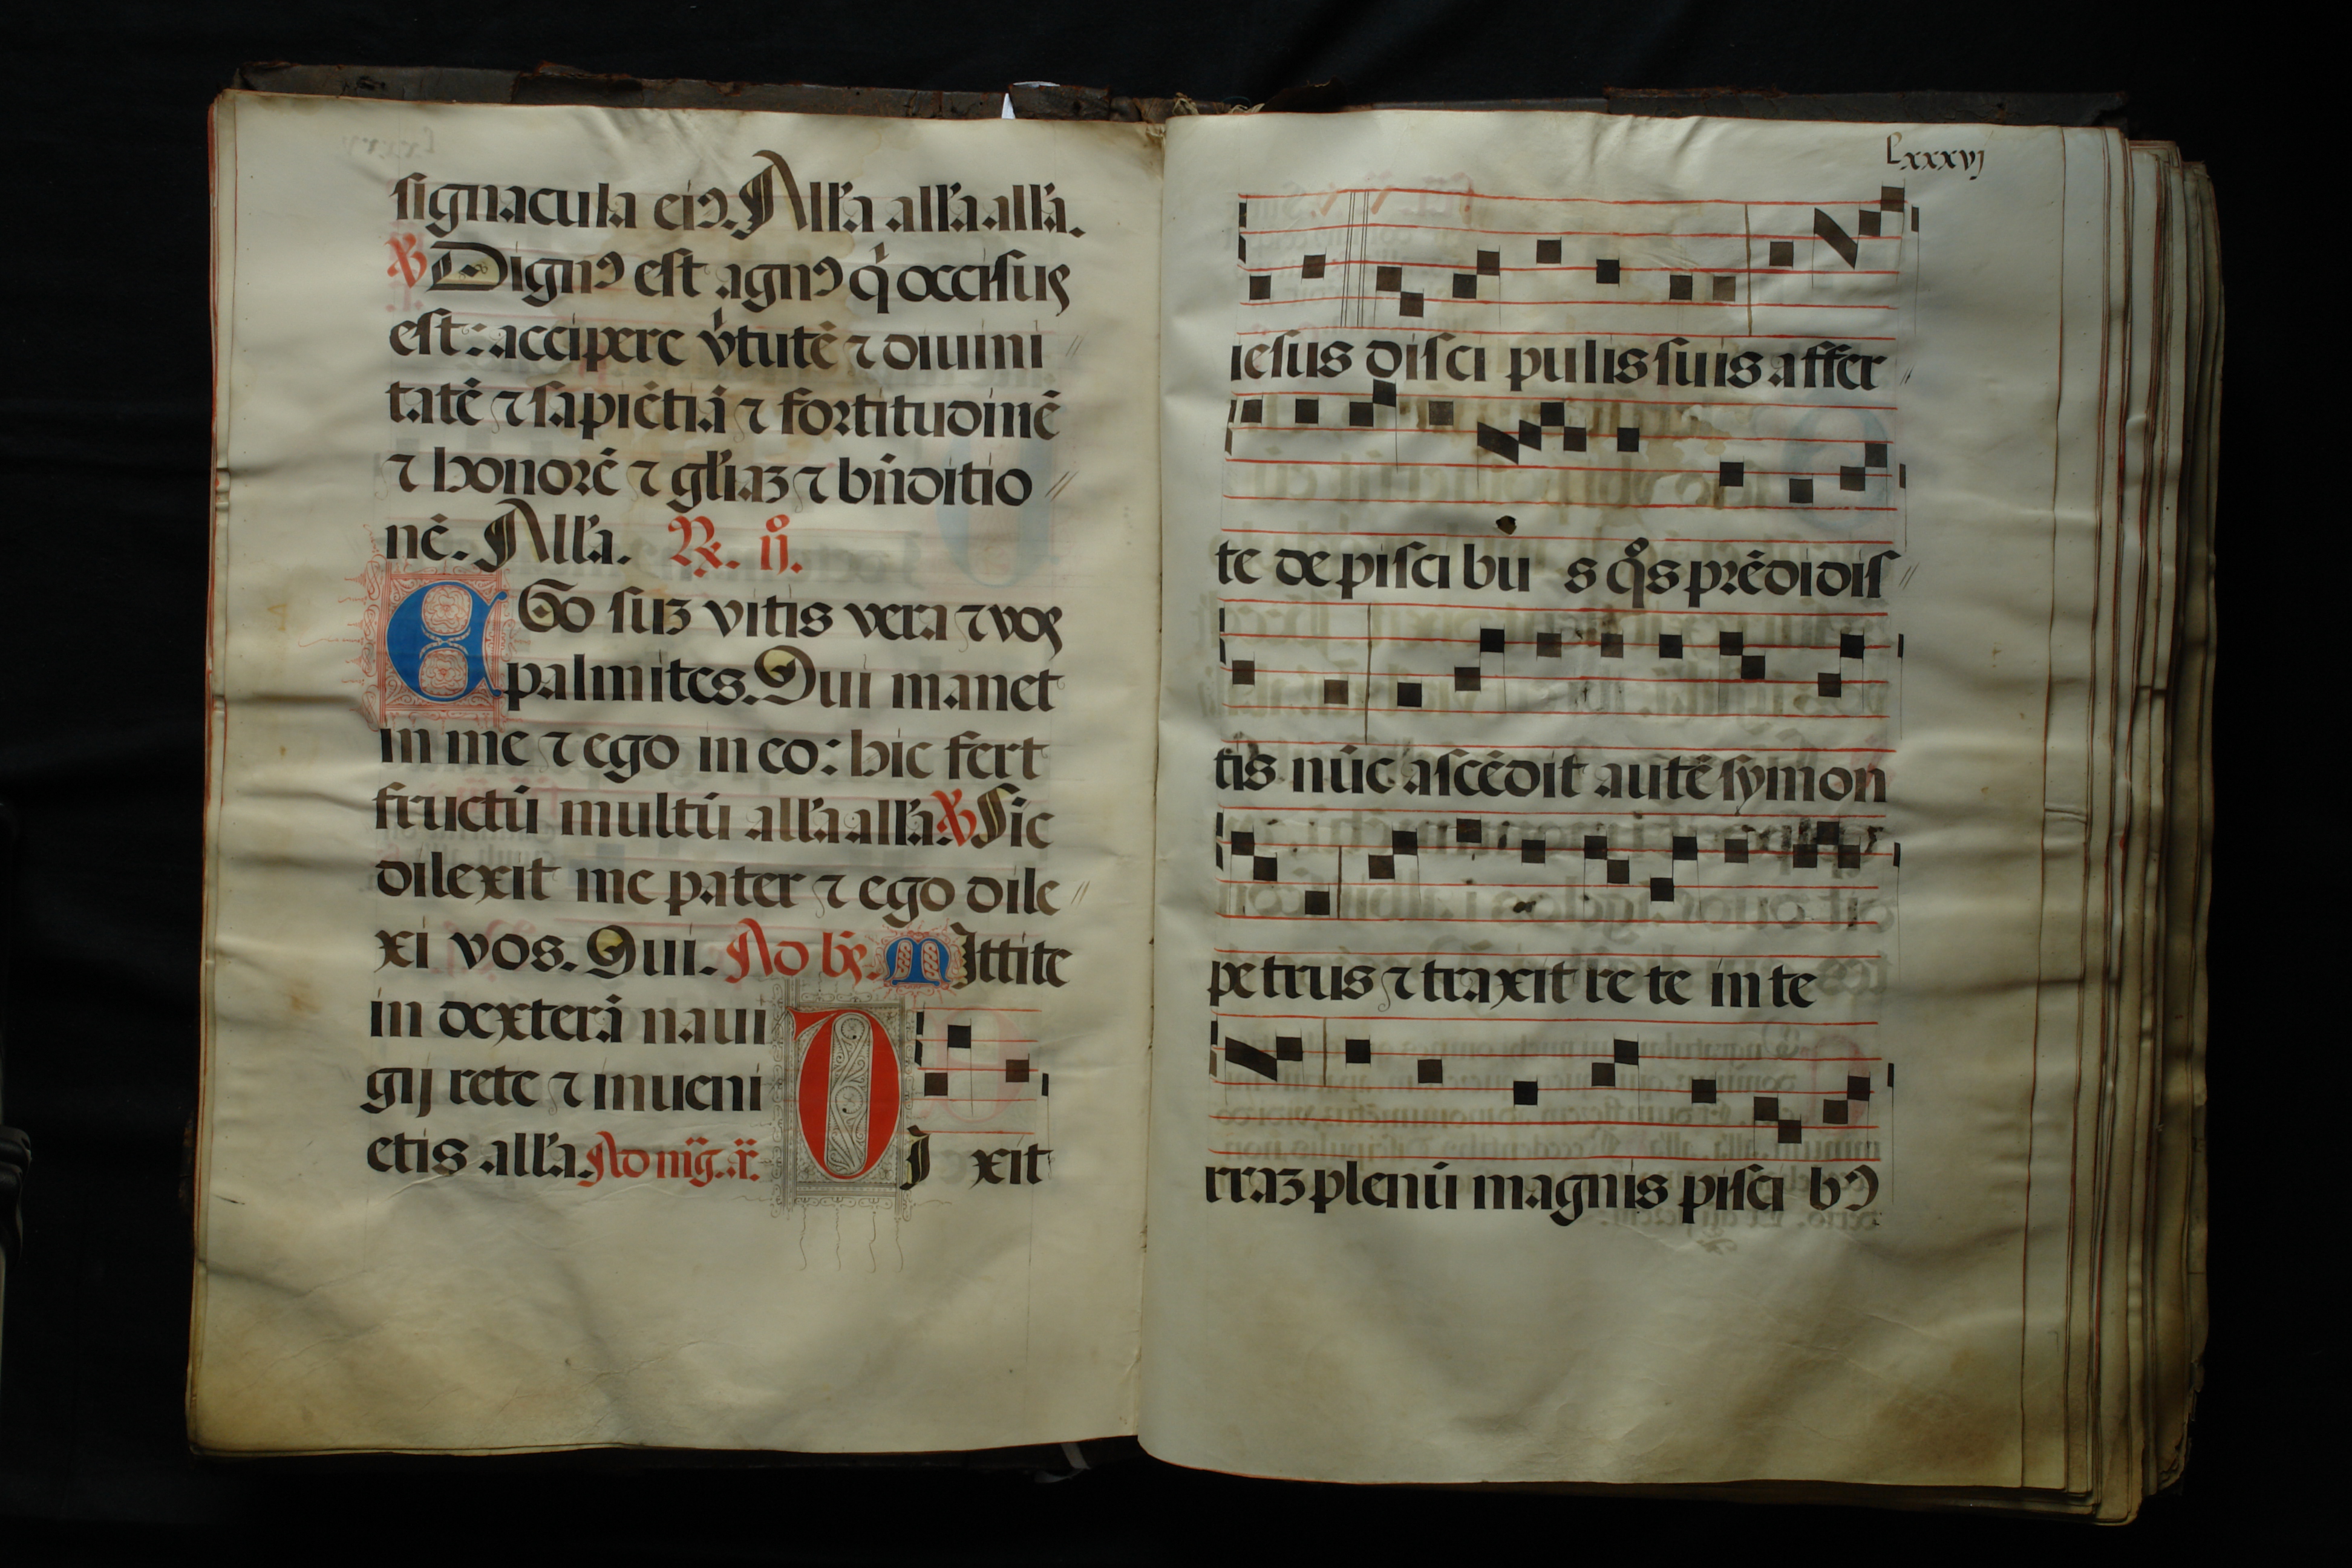 signacula eiꝰ. All'a all'a all'a.
℣ Dignꝰ est agnꝰ q́ occisus
est: accipere v́tutē ⁊ diuini //
tatē ⁊ sapiētiā ⁊ fortitudinē
⁊ honorē ⁊ gl'iaꝫ ⁊ bn̄ditio //
nē. All'a. ℟. ij.
EGo suꝫ vitis vera ⁊ vos
palmites. Qui manet
in me ⁊ ego in eo: hic fert
fructū multū all'a all'a ℣ Sic
dilexit me pater ⁊ ego dile //
xi vos. Qui. Ad bs̄. MIttite
in dexterā naui
gij rete ⁊ inueni
etis all'a. Ad mḡ. a.
DI xit
Lxxxvj
iesus disci pulis suis affer //
te de pisci bu s q̊s prēdidis //
tis nūc ascēdit autē symon
petrus ⁊ traxit re te in te
rraꝫ plenū magnis pisci bꝰ